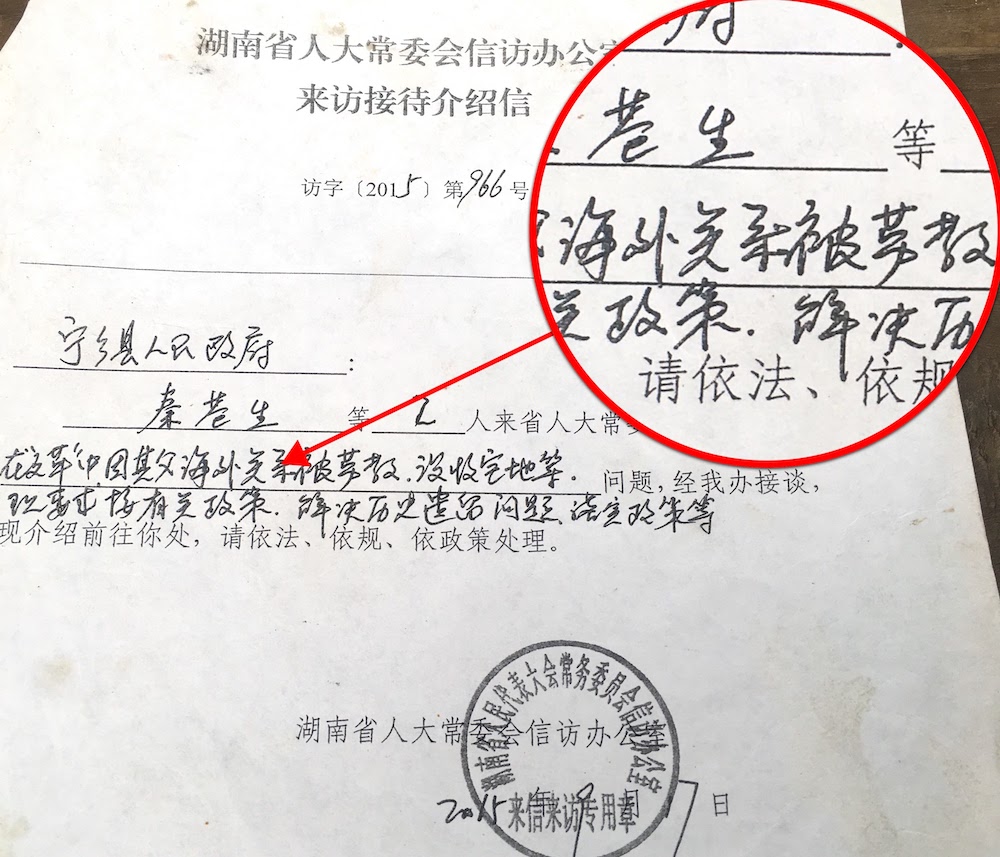 湖南省人大常委会信访办公室
来访接待介绍信
访字〔2015〕第966号
宁乡县人民政府：
秦 生 等 2 人来省人大常
在文革中因其父海外关系被劳教、没收宅地等 问题，经我办接谈，
现要求按有关政策，解决历史遗留问题落实政策等
现介绍前往你处，请依法、依规、依政策处理。
湖南省人大常委会信访办公室
湖南省人民代表大会常务委员会信访办公室
2015年9月7日
来信来访专用章
府：
生 等
海外关系被劳教
关政策．解决历
请依法、依规